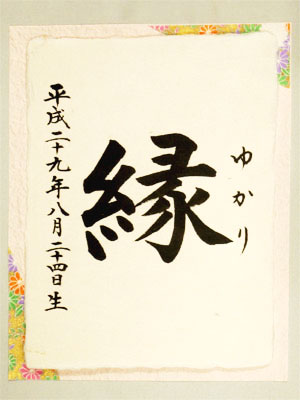 ゆかり
縁
平成二十九年八月二十四日生